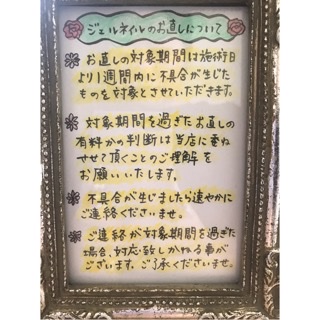 ジェルネイルのお直しについて
お直しの対象期間は施術日
より1週間内に不具合が生じた
ものを対象とさせていただきます。
対象期間を過ぎたお直しの
有料かの判断は当店に委ね
させて頂くことのご理解を
お願いいたします。
不具合が生じましたら速やかに
ご連絡くださいませ。
ご連絡が対象期間を過ぎた
場合、対応致しかねる事が
ございます。ご了承くださいませ。